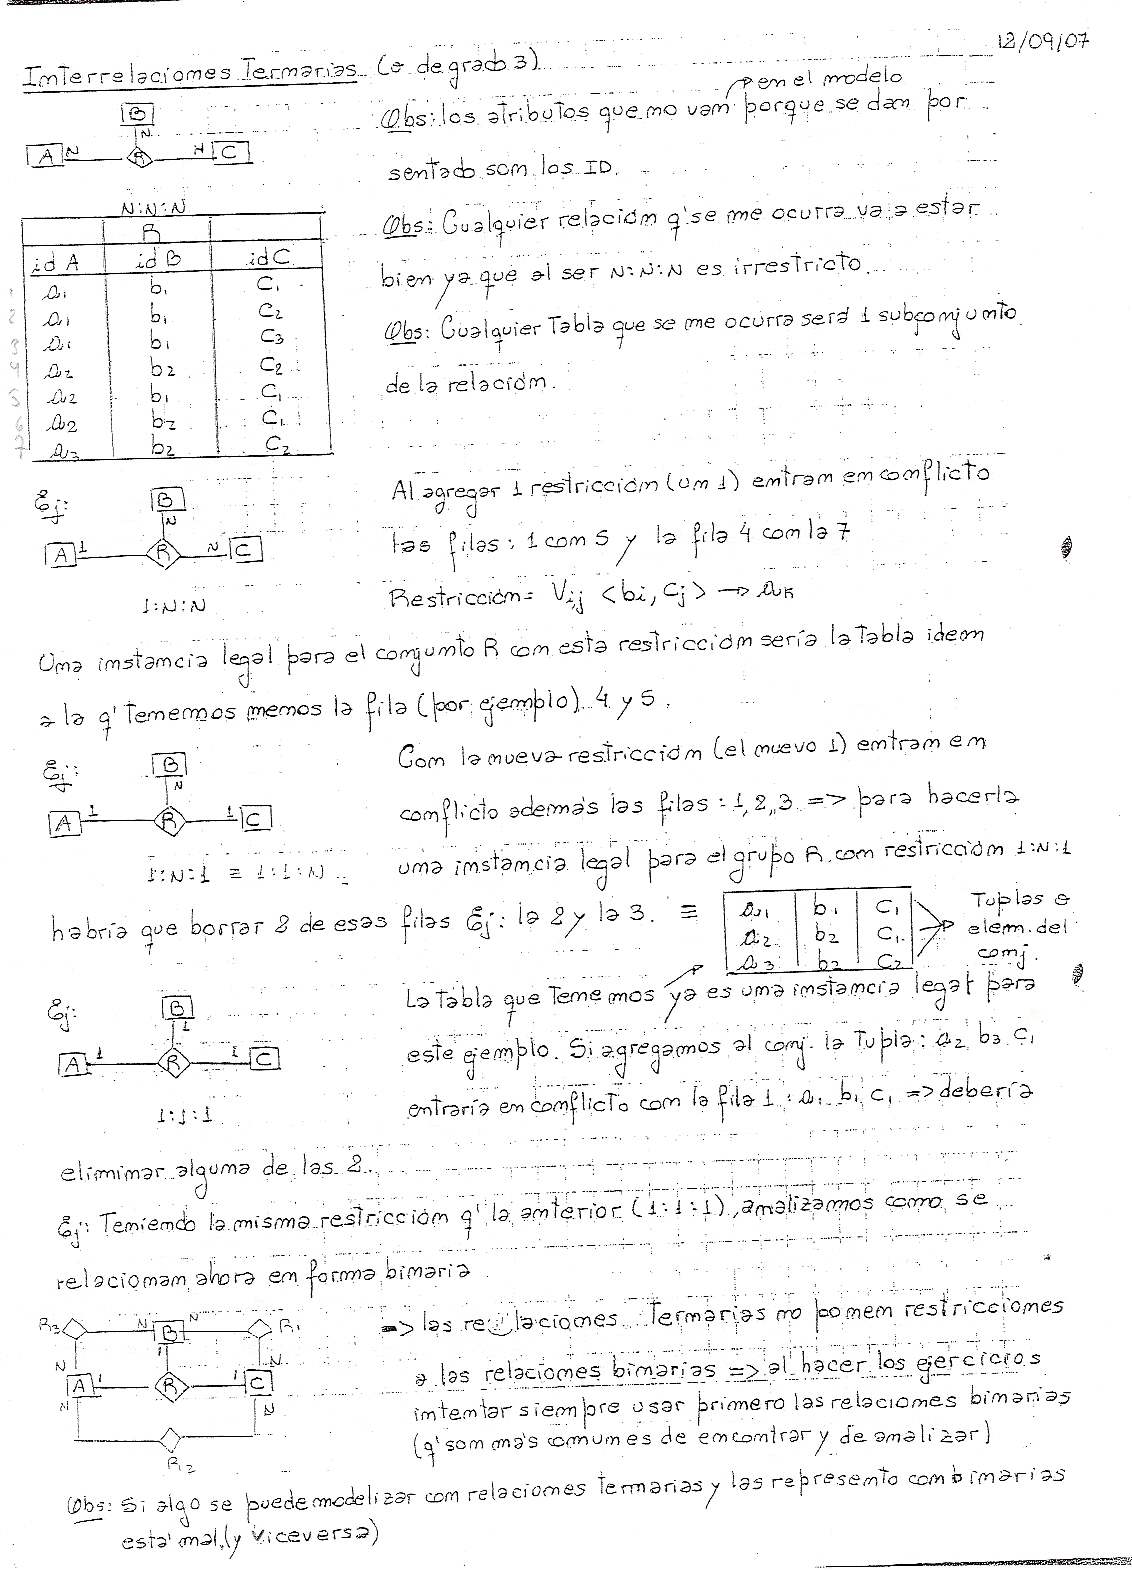 12/09/07
Interrelaciones Ternarias (o de grado 3)
en el modelo
B
N
A N R N C
Obs: los atributos que no van porque se dan por
sentado son los ID.
N:N:N
R
id A id B id C
1 a1 b1 C1
2 a1 b1 C2
3 a1 b1 C3
4 a2 b2 C2
5 a2 b1 C1
6 a2 b2 C1
7 a3 b2 C2
Obs: Cualquier relación q' se me ocurra va a estar
bien ya que al ser N:N:N es irrestricto
Obs: Cualquier Tabla que se me ocurra será 1 subconjunto
de la relación.
Ej:
B
N
A 1 R N C
1:N:N
Al agregar 1 restricción (un 1) entran en conflicto
las filas: 1 con 5 y la fila 4 con la 7
Restricción= Vij <bi, Cj> → aK
Una instancia legal para el conjunto R con esta restricción sería la Tabla idem
a la q' Tenemos menos la fila (por ejemplo) 4 y 5.
Ej:
B
N
A 1 R 1 C
1:N:1 ≡ 1:1:N
Con la nueva restricción (el nuevo 1) entran en
conflicto además las filas: 1,2,3 => para hacerla
una instancia legal para el grupo R con restricción 1:N:1
habría que borrar 2 de esas filas Ej: la 2 y la 3. ≡
a1 b1 C1
a2 b2 C1
a3 b2 C2
Tuplas o
elem. del
conj.
Ej:
B
1
A 1 R 1 C
1:1:1
La Tabla que Tenemos ya es una instancia legal para
este ejemplo. Si agregamos al conj. la Tupla: a2 b3 C1
entraría en conflicto con la fila 1: a1 b1 C1 => debería
eliminar alguna de las 2.
Ej: Teniendo la misma restricción q' la anterior (1:1:1), analizamos como se
relacionan ahora en forma binaria
R3 N B N R1
N 1 N
A 1 R 1 C
N N
R12
=> las relaciones Ternarias no ponen restricciones
a las relaciones binarias => al hacer los ejercicios
intentar siempre usar primero las relaciones binarias
(q' son más comunes de encontrar y de analizar)
Obs: Si algo se puede modelizar con relaciones ternarias y las represento con binarias
está mal, (y Viceversa)